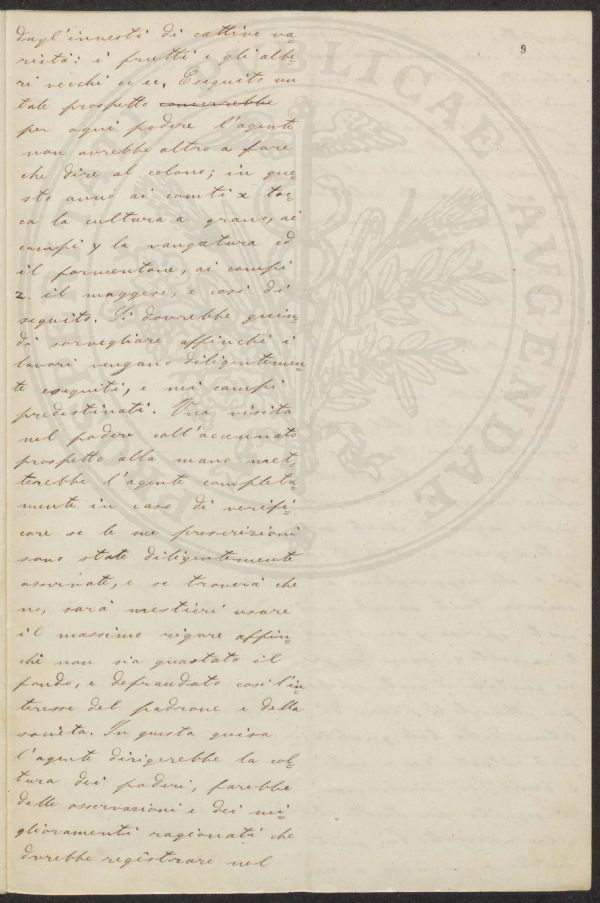 9
dagl'innesti di cattive va=
rietà: i frutti e gli albe=
ri vecchi ec ec. Eseguito un
tale prospetto converrebbe
per ogni podere l'agente
non avrebbe altro a fare
che dire al colono; in que=
sto anno ai campi x toc=
ca la cultura a grano, ai
campi y la vangatura ed
il formentone, ai campi
z. il maggese, e così di
seguito. Si dovrebbe quin=
di sorvegliare affinchè i
lavori vengano diligentemen=
te eseguiti, e nei campi
predestinati. Una visita
nel podere coll'accennato
prospetto alla mano met=
terebbe l'agente completa=
mente in caso di verifi=
care se le sue prescrizioni
sono state diligentemente
osservate, e se troverà che
no, sarà mestieri usare
il massimo rigore affin=
chè non sia guastato il
fondo, e defraudato così l'in=
teresse del padrone e della
società. In questa guisa
l'agente dirigerebbe la col=
tura dei poderi, farebbe
delle osservazioni e dei mi=
glioramenti ragionati che
dovrebbe registrare nel
PUBLICAE
AUGENDAE